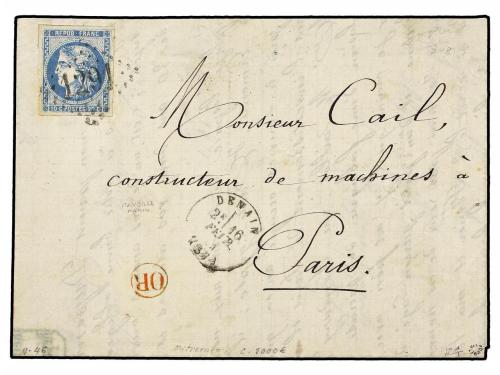 REPUB · FRANC
1291
20 C POSTES 20 C
Monsieur Cail,
constructeur de machines à
Paris.
DENAIN
2E 16
FEVR.
OR
C. 2000€